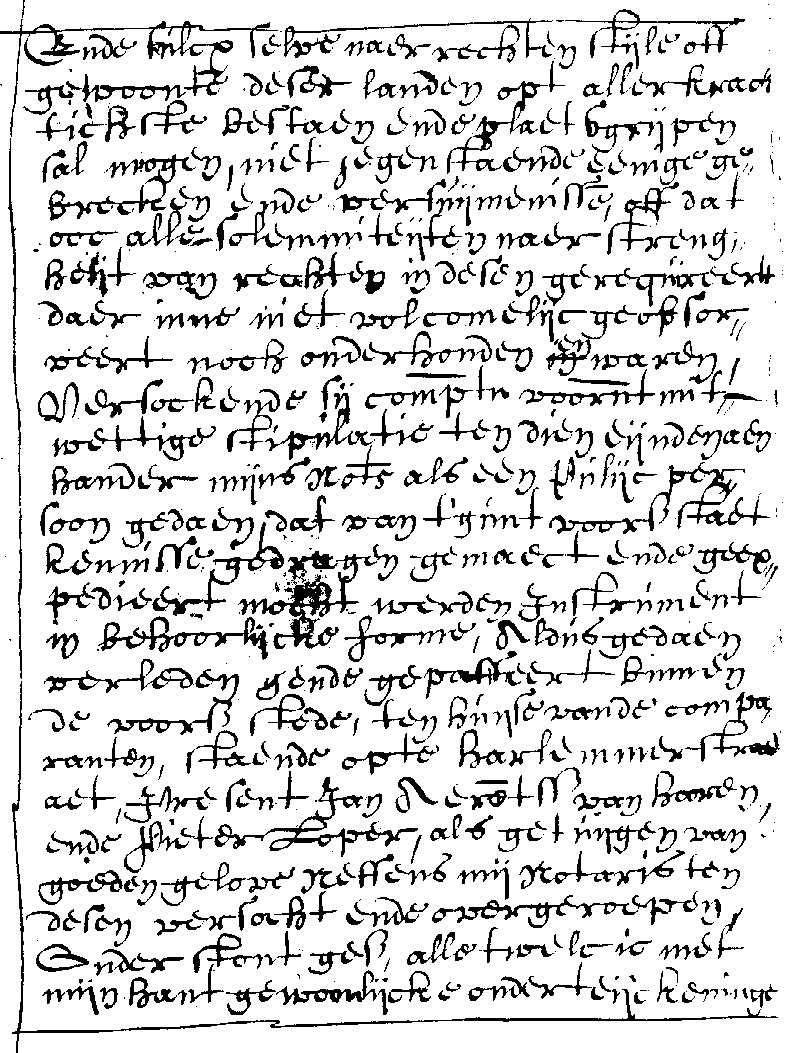 Ende sulcx selve naer rechten stijle off
gewoonte deser landen opt aller krach
tichste bestaen ende plaet vgrijpen
sal mogen, niet jegenstaende eenige ge„
brecken ende versuijmenisse, off dat
ooc alle solemniteijten naer streng„
heijt van rechten in desen gerequireert
daer inne niet volcomelijc geobser„
veert noch onderhonden en waren,
Versoekende sij comptn voornt mit
wettige stipulatie ten dien eijnden aen
handen mijns Nots als een Publijc per„
soon gedaen, dat van t'gunt voors staet
kennisse gedragen gemaect ende geex„
pedieert mocht werden Instrument
in behoorlijcke forme, Aldus gedaen
verleden ende gepasseert binnen
de voors stede, ten huijse vande compa
ranten, staende opte harlemmerstra
aet, Present Jan Aerentss van haren,
ende Pieter Loper, als getuijgen van
goeden gelove Neffens mij Notaris ten
desen versocht ende overgeroepen,
Onder stont ges, alle twelc ic met
mijn hant gewoonlijcke onderteijckeninge